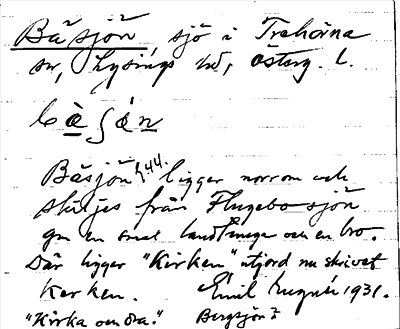 Båsjön, sjö i Trehörna
sn, Lysings hd, Österg. l.
bå̀ʃɷ́n
Båsjön 44. ligger norr om och
skiljes från Flugebo sjön
gm en smal landtunga och en bro.
Där ligger "Kirken" utjord nu skrivet
Kerken. Emil August 1931.
"Kirka om dra." Bergsjön?